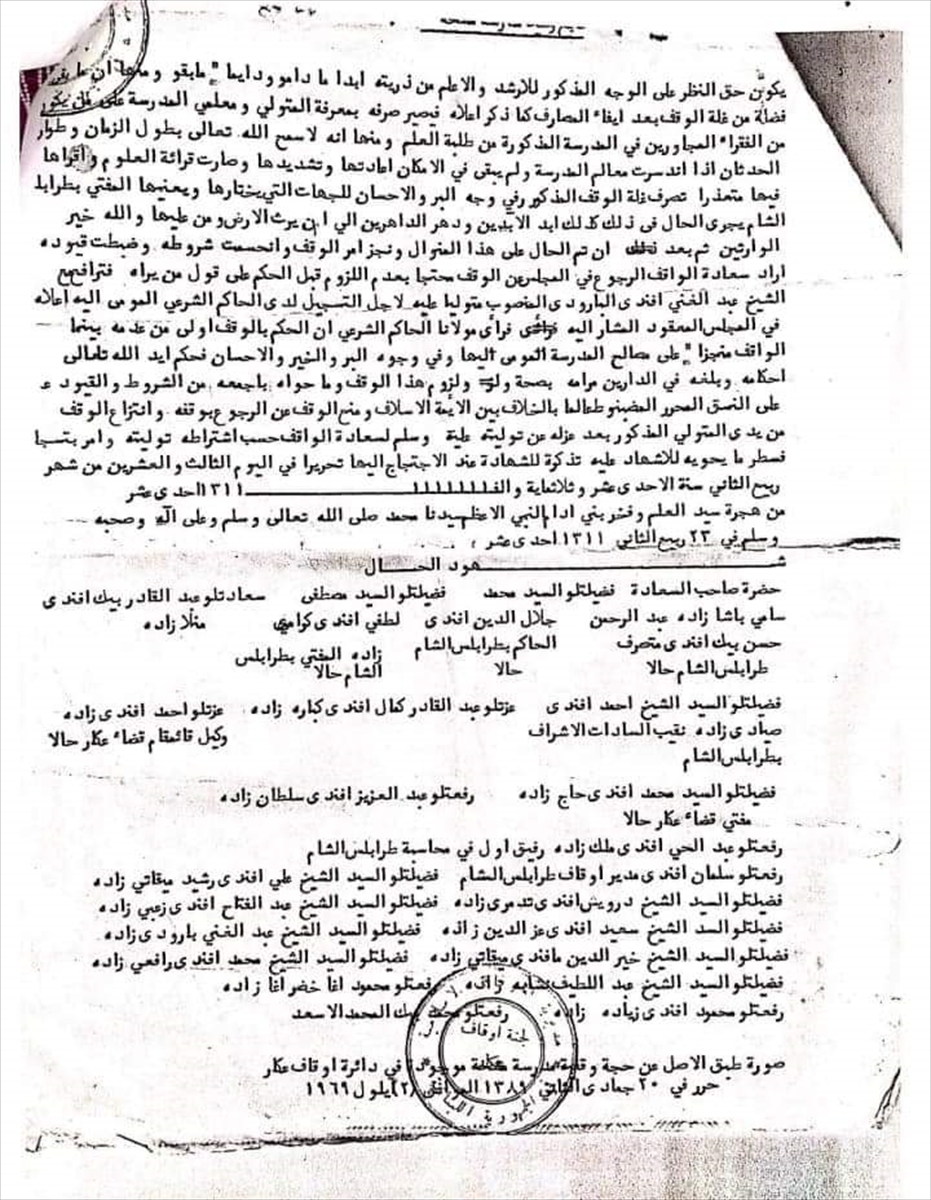 يكون حق النظر على الوجه المذكور للارشد والاعلم من ذريته ابدا ما داموا ودايما " مابقو ومنها ان ما
فضلة من غلة الوقف بعد ايفاء المصارف كما ذكر اعلاه فيصير صرفه بمعرفة المتولي ومعلمي المدرسة على
من الفقراء المجاورين في المدرسة المذكورة من طلبة العلم ومنها انه لا سمح الله تعالى بطول الزمان وطوار
الحدثان اذا اندسرت معالم المدرسة ولم يبقى في الامكان اعادتها وتشديدها وصارت قرائة العلوم واقراها
فيها متعذرا تصرف غلة الوقف المذكور في وجه البر والاحسان للجهات التي يختارها ويعنيها المفتي بطرابلس
الشام يجرى الحال فى ذلك كذلك ابد الابدين ودهر الداهرين الى ان يرث الارض ومن عليها والله خير
الوارثين ثم بعد ان تم الحال على هذا المنوال ونجز امر الوقف وانحسمت شروطه وضبطت قيوده
اراد سعادة الواقف الرجوع في المجلس عن الوقف محتجا بعدم اللزوم قبل الحكم على قول من يراه فترافعهم
الشيخ عبد الغني افندى البارودى المنصوب متوليا عليه لاجل التسجيل لدى الحاكم الشرعي المومى اليه اعلاه
في المجلس المعقود المشار اليه فرأى مولانا الحاكم الشرعي ان الحكم بالوقف اولى من عدمه بينما
الواقف منجزا " على مصالح المدرسة المومى اليها وفي وجوه البر والخير والاحسان فحكم ايد الله تعالى
احكامه وبلغه في الدارين مرامه بصحة ولزوم هذا الوقف وما حواه باجمعه من الشروط والقيود ع
على النسق المحرر المضبوط عالما بالخلاف بين الائمة الاسلاف ومنع الوقف عن الرجوع بوقفه وانتزاع الوقف
من يدى المتولي المذكور بعد عزله عن توليته علية وسلم لسعادة الواقف حسب اشتراطه توليته وامر بتسجيا
فسطر ما يحويه للاشهاد عليه تذكرة للشهادة عند الاحتجاج اليها تحريرا في اليوم الثالث والعشرين من شهر
ربيع الثاني سنة الاحدى عشر وثلاثماية والف ١٣١١ احدى عشر
من هجرة سيد العلم وفخر بني ادام النبي الاعظم سيدنا محمد صلى الله تعالى وسلم وعلى اله وصحبه
وسلم في ٢٣ ربيع الثاني ١٣١١ احدى عشر ،
شهود الحال
حضرة صاحب السعادة فضيلتلو السيد محمد فضيلتلو السيد مصطفى سعادتلو عبد القادر بيك افندى
سامي باشا زاده عبد الرحمن جلال الدين افندى لطفي افندى كرامي منلا زاده
حسن بيك افندى متصرف الحاكم بطرابلس الشام زاده المفتي بطرابلس
طرابلس الشام حالا حالا الشام حالا
فضيلتلو السيد الشيخ احمد افندى عزتلو عبد القادر كمال افندى كباره زاده عزتلو احمد افندى زاده
صيادى زاده نقيب السادات الاشراف وكيل قائمقام قضاء عكار حالا
بطرابلس الشام
فضيلتلو السيد محمد افندى حاج زاده رفعتلو عبد العزيز افندى سلطان زاده
مفتي قضاء عكار حالا
رفعتلو عبد الحي افندى ملك زاده رفيق اول في محاسبة طرابلس الشام
رفعتلو سلمان افندى مدير اوقاف طرابلس الشام فضيلتلو السيد الشيخ علي افندى رشيد ميقاتي زاده
فضيلتلو السيد الشيخ درويش افندى تدمرى زاده فضيلتلو السيد الشيخ عبد الفتاح افندى زعبي زاده
فضيلتلو السد الشيخ سعيد افندى عز الدين زاده فضيلتلو السيد الشيخ عبد الغني بارودى زاده
فضيلتلو السيد الشيخ خير الدين مافندى ميقاتي زاده فضيلتلو السيد الشيخ محمد افندى رافعي زاده
فضيلتلو السيد الشيخ عبد اللطيف نشابه زاده رفعتلو محمود اغا خضر اغا زاده
رفعتلو محمود افندى زياده زاده رفعتلو محمد بيك المحمد الاسعد
لجنة اوقاف
عكار
صورة طبق الاصل عن حجة وقفية مدرسة موجودة في دائرة اوقاف عكار
حرر في ٢٠ جمادى الثاني ١٣٨٩ الموافق ٢ ايلول ١٩٦٩